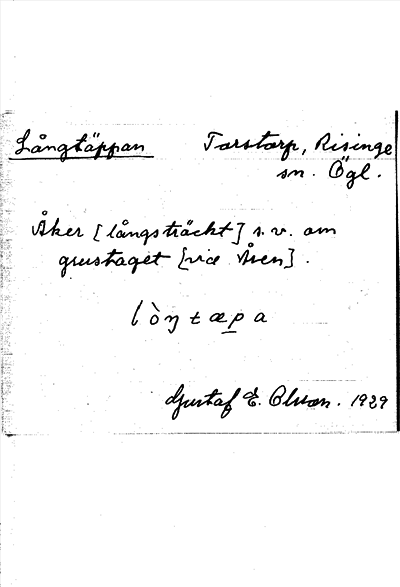 Långtäppan Torstorp, Risinge
sn. Ögl.
Åker [långsträckt] s.v. om
grustaget [vid Åsen].
lòŋtæpa
Gustaf E. Olsson. 1929